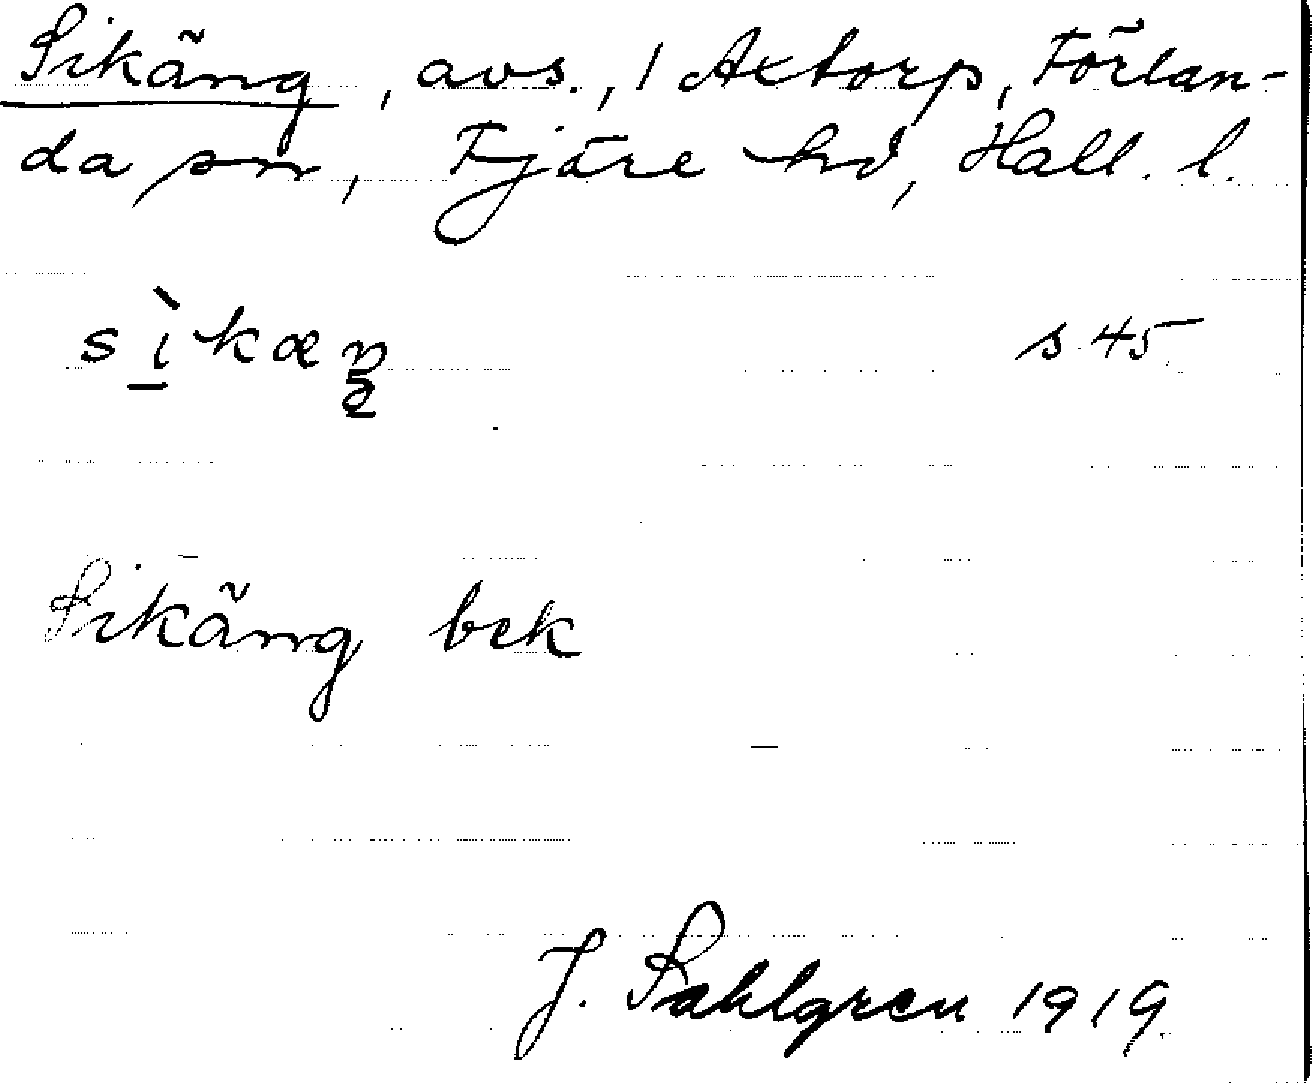 Sikäng, avs., 1 Axtorp, Förlan-
da sn, Fjäre hd, Hall. l.
sìkæŋ s 45
Sikäng bek
J. Sahlgren 1919